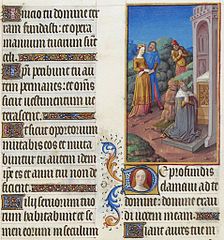 Inicio tu domine ter
ram fundasti: et opera
manuum tuarum sunt
celi
Ipi peribunt tu au
tem permanes: et oms
sicut vestimentum ve
terascent
Et sicut opertorium
mutabis eos et muta
buntur tu autem idem
ipse es et anni tui non
deficient
Filii servorum tuo
rum habitabunt et se
men eorum in seculum
De profundis
clamavi ad te
domine: domine exau
di vocem meam
Fiant aures tue in